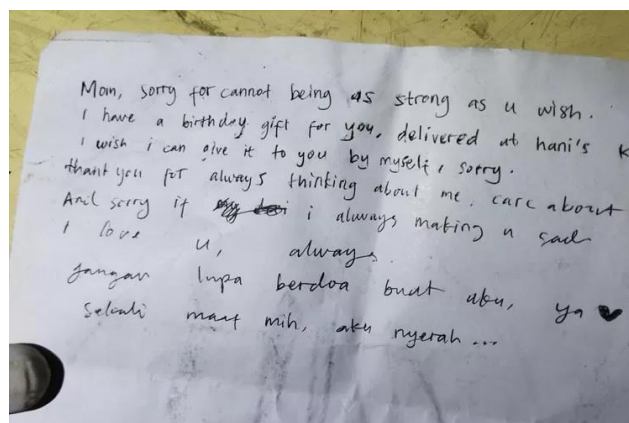 Mom, sorry for cannot being as strong as u wish.
I have a birthday gift for you, delivered at hani's K
I wish i can give it to you by myself, sorry.
thank you for always thinking about me, care about
And sorry if i always making u sad
I love u, always.
Jangan lupa berdoa buat aku, ya ♥
Sekali maaf mih, aku nyerah ...